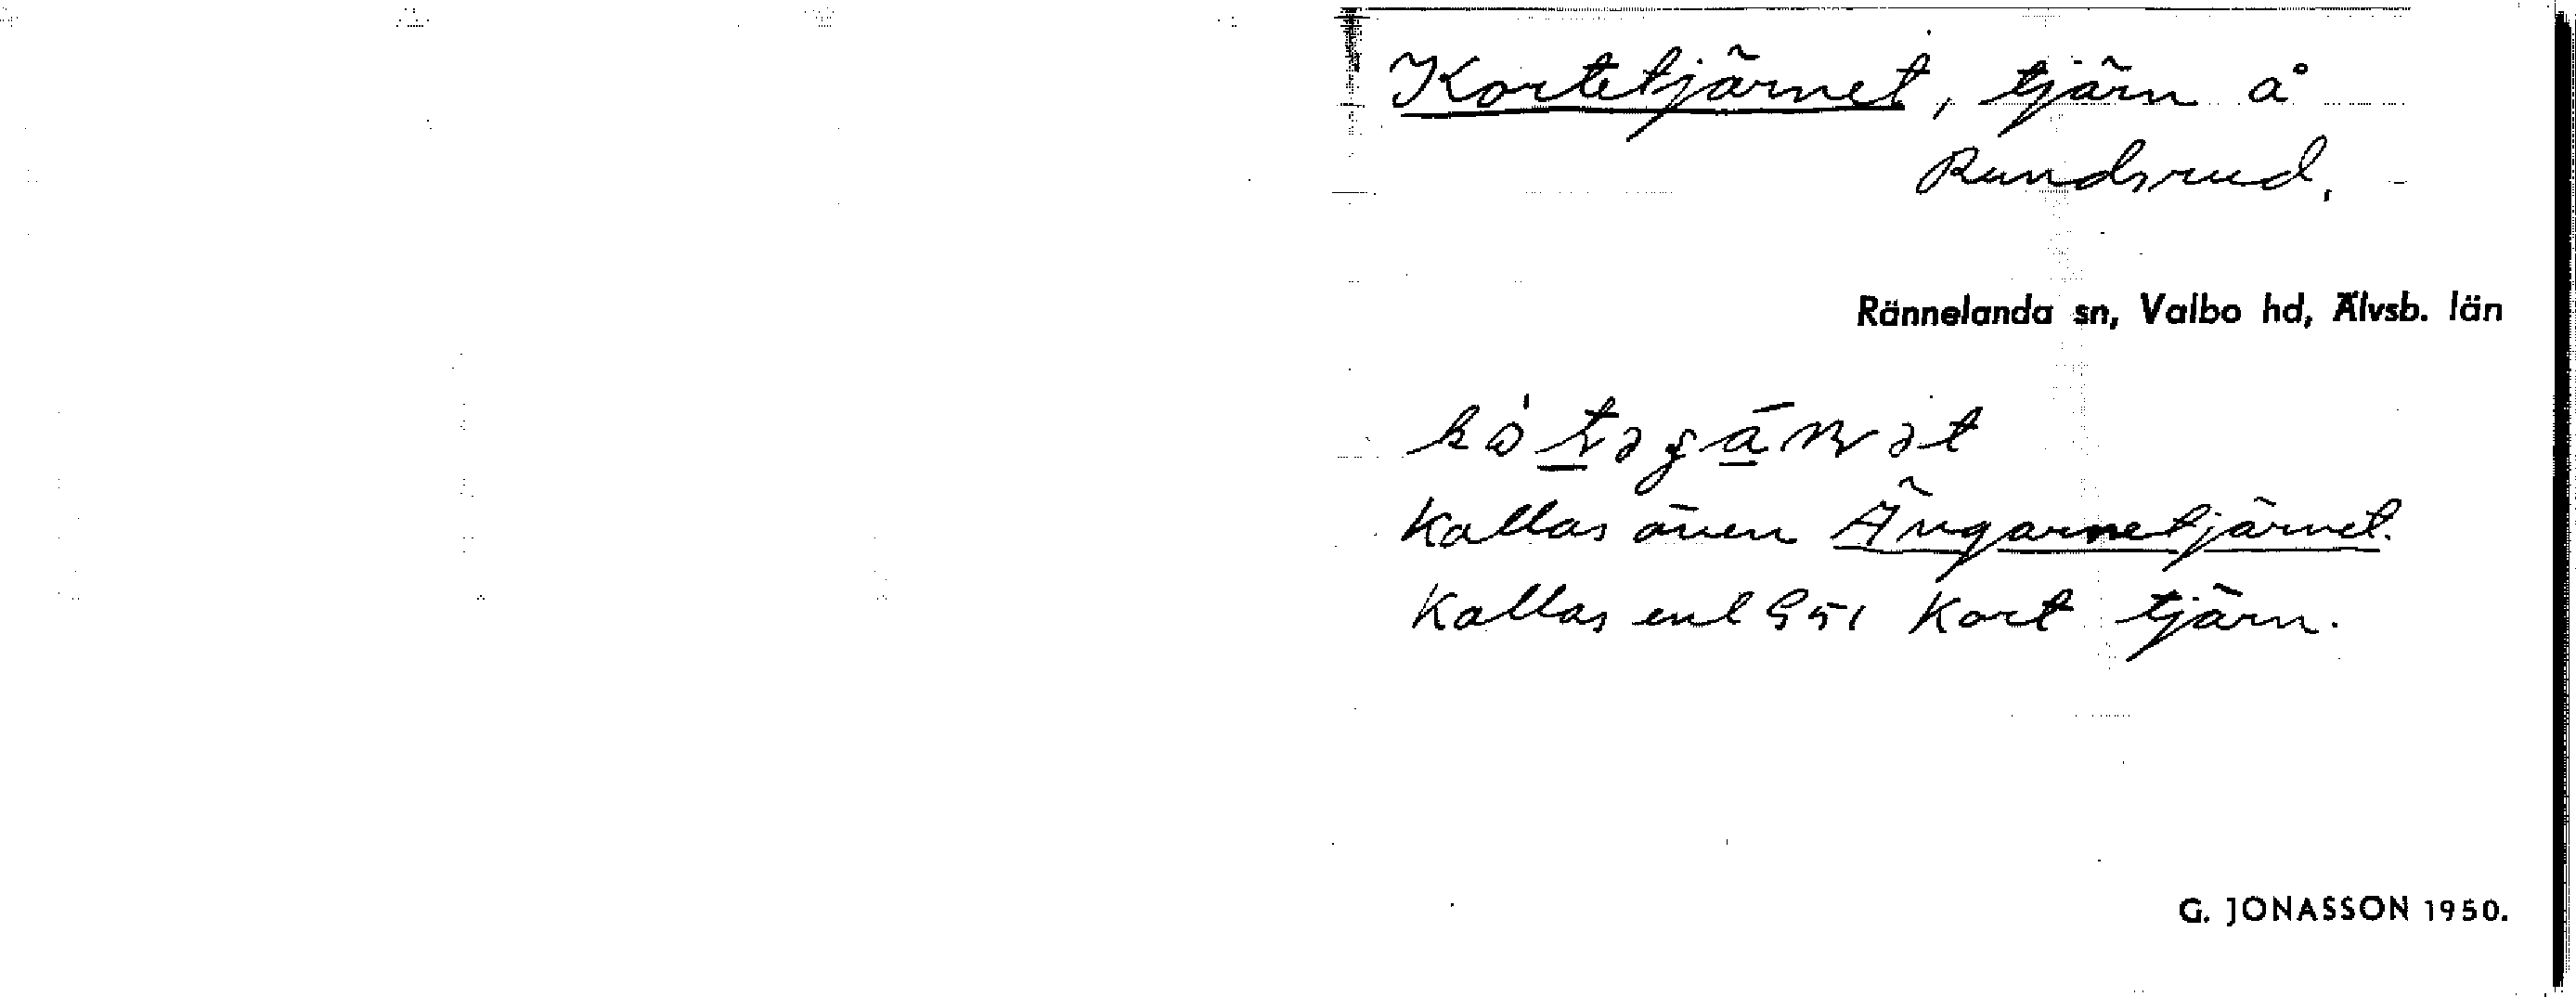 Kortetjärnet, tjärn å
Rundsrud.
Rännelanda sn, Valbo hd, Älvsb. län
Kallas även Ängarnetjärnet.
Kallas enl G51 Kort tjärn.
G. JONASSON 1950.